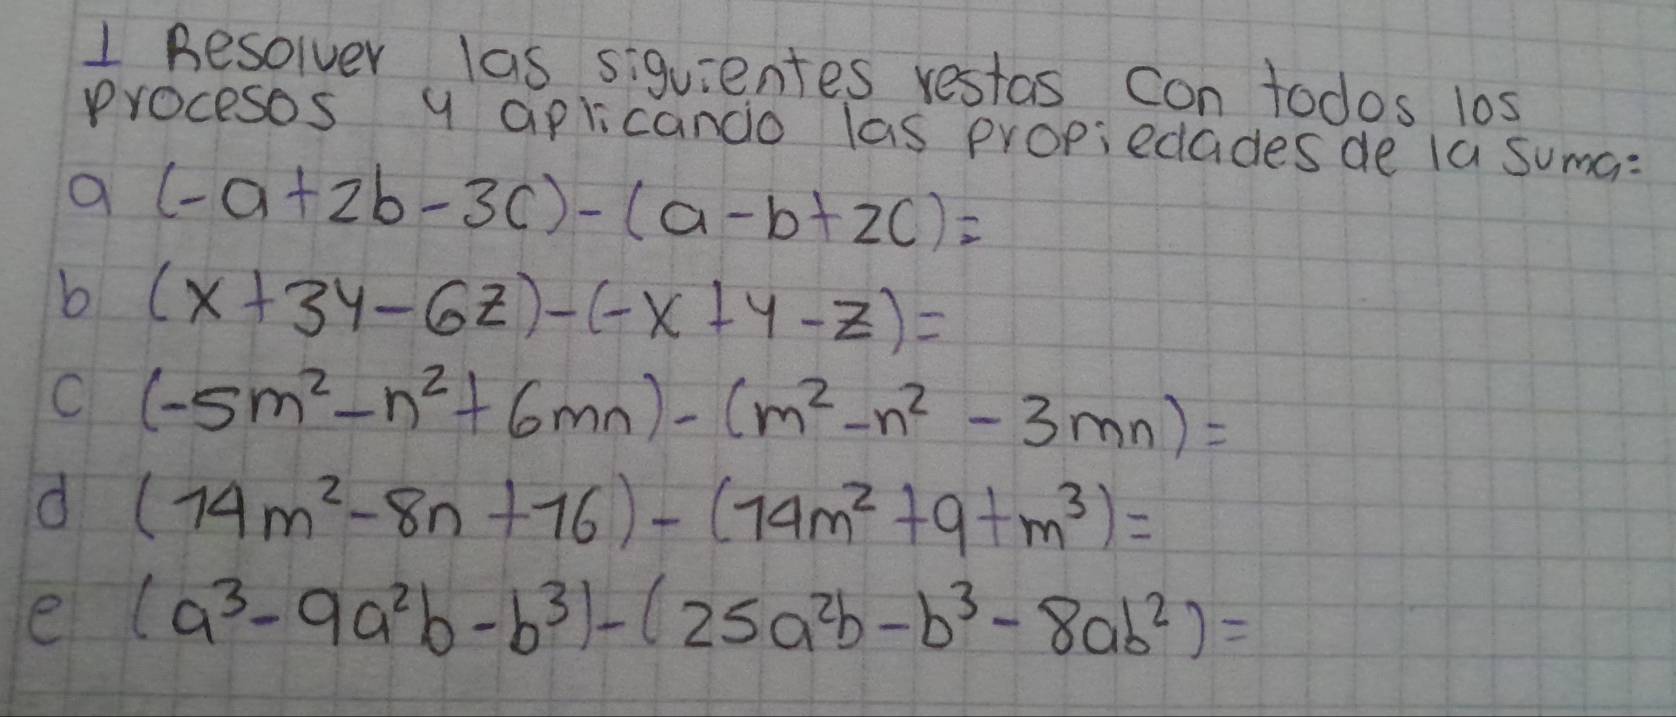 1 Resolver las siguientes restas con todos los
procesos y aplicando las propiedades de la suma:
a (-a+2b-3c)-(a-b+2c)=
b (x+3y-6z)-(-x+y-z)=
c (-5m²-n²+6mn)-(m²-n²-3mn)=
d (14m²-8n+16)-(14m²+9+m³)=
e (a³-9a²b-b³)-(25a²b-b³-8ab²)=